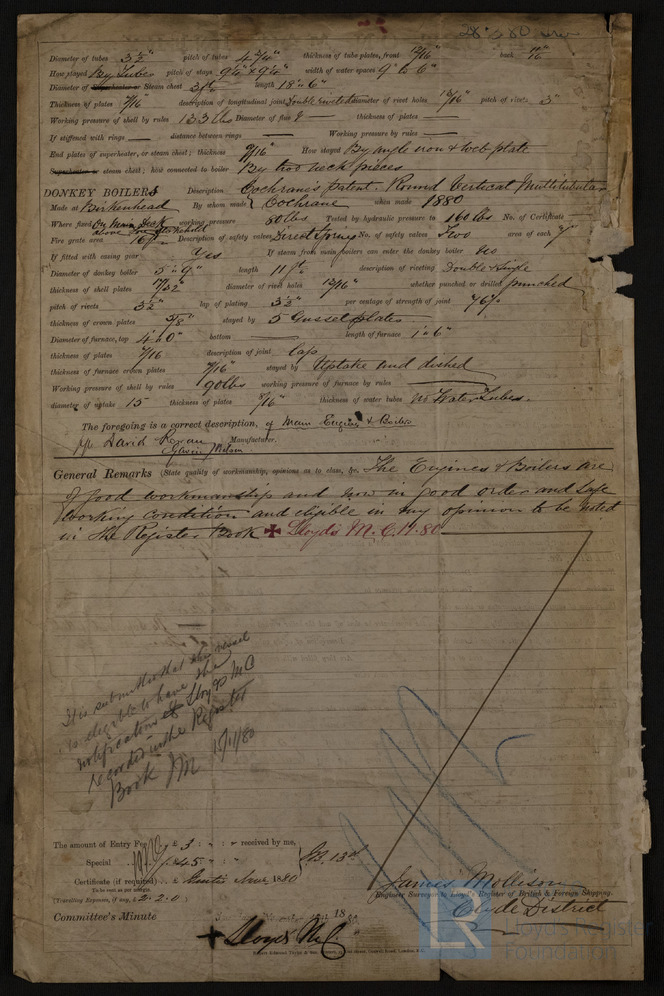 28 80
Diameter of tubes 3½" pitch of tubes 4¾" thickness of tube plates, front 13/16" back 11/16"
How stayed By Tubes pitch of stays 9½" x 9½" width of water spaces 9" to 6"
Diameter of Superheater or Steam chest length 18' 6"
Thickness of plates 7/16 description of longitudinal joint Double riveted diameter of rivet holes 13/16 pitch of rivets 3"
Working pressure of shell by rules 133 lbs Diameter of flue thickness of plates —
If stiffened with rings — distance between rings — Working pressure by rules —
End plates of superheater, or steam chest; thickness 9/16" How stayed By angle iron & web plate
Superheater or steam chest; how connected to boiler By two neck pieces
DONKEY BOILERS Description Cochran's Patent. Round Vertical Multitubular
Made at Birkenhead By whom made Cochrane when made 1880
Where fixed On Main Deck above working pressure 80 lbs Tested by hydraulic pressure to 160 lbs No. of Certificate
Fire grate area 16 Description of safety valves Direct Spring No. of safety valves Two area of each 7"
If fitted with easing gear Yes If steam from main boilers can enter the donkey boiler No
Diameter of donkey boiler 5' 9" length 11 ft description of riveting Double & Single
thickness of shell plates 13/32" diameter of rivet holes 13/16" whether punched or drilled punched
pitch of rivets 3½" lap of plating 3½" per centage of strength of joint 76%
thickness of crown plates 5/8" stayed by 5 Gusset plates
Diameter of furnace, top 4' 0" bottom — length of furnace 1' 6"
thickness of plates 7/16 description of joint lap
thickness of furnace crown plates 7/16" stayed by Uptake and dished
Working pressure of shell by rules 90 lbs working pressure of furnace by rules —
diameter of uptake 15 thickness of plates 5/16" thickness of water tubes No Water Tubes.
The foregoing is a correct description, of Main Engines & Boilers
pp David Rowan Manufacturer.
Gavin Wilson
General Remarks (State quality of workmanship, opinions as to class, &c. The Engines & Boilers are
of good workmanship and now in good order and safe
working condition and eligible in my opinion to be noted
in the Register Book ✠ Lloyd's M.C. 11.80
It is submitted that this vessel
is eligible to have the
notification of Lloyds MC
recorded in the Register
Book JM 15/11/80
The amount of Entry Fee £ 3 : " : " received by me,
Special £ 45 " "
Certificate (if required) 1880
To be sent as per margin.
(Travelling Expenses, if any, £ 2.2.0)
James Mollison
Engineer Surveyor to Lloyd's Register of British & Foreign Shipping.
Clyde District
Committee's Minute 18 80
+ Lloyds M.C.
LR Lloyd's Register
Foundation